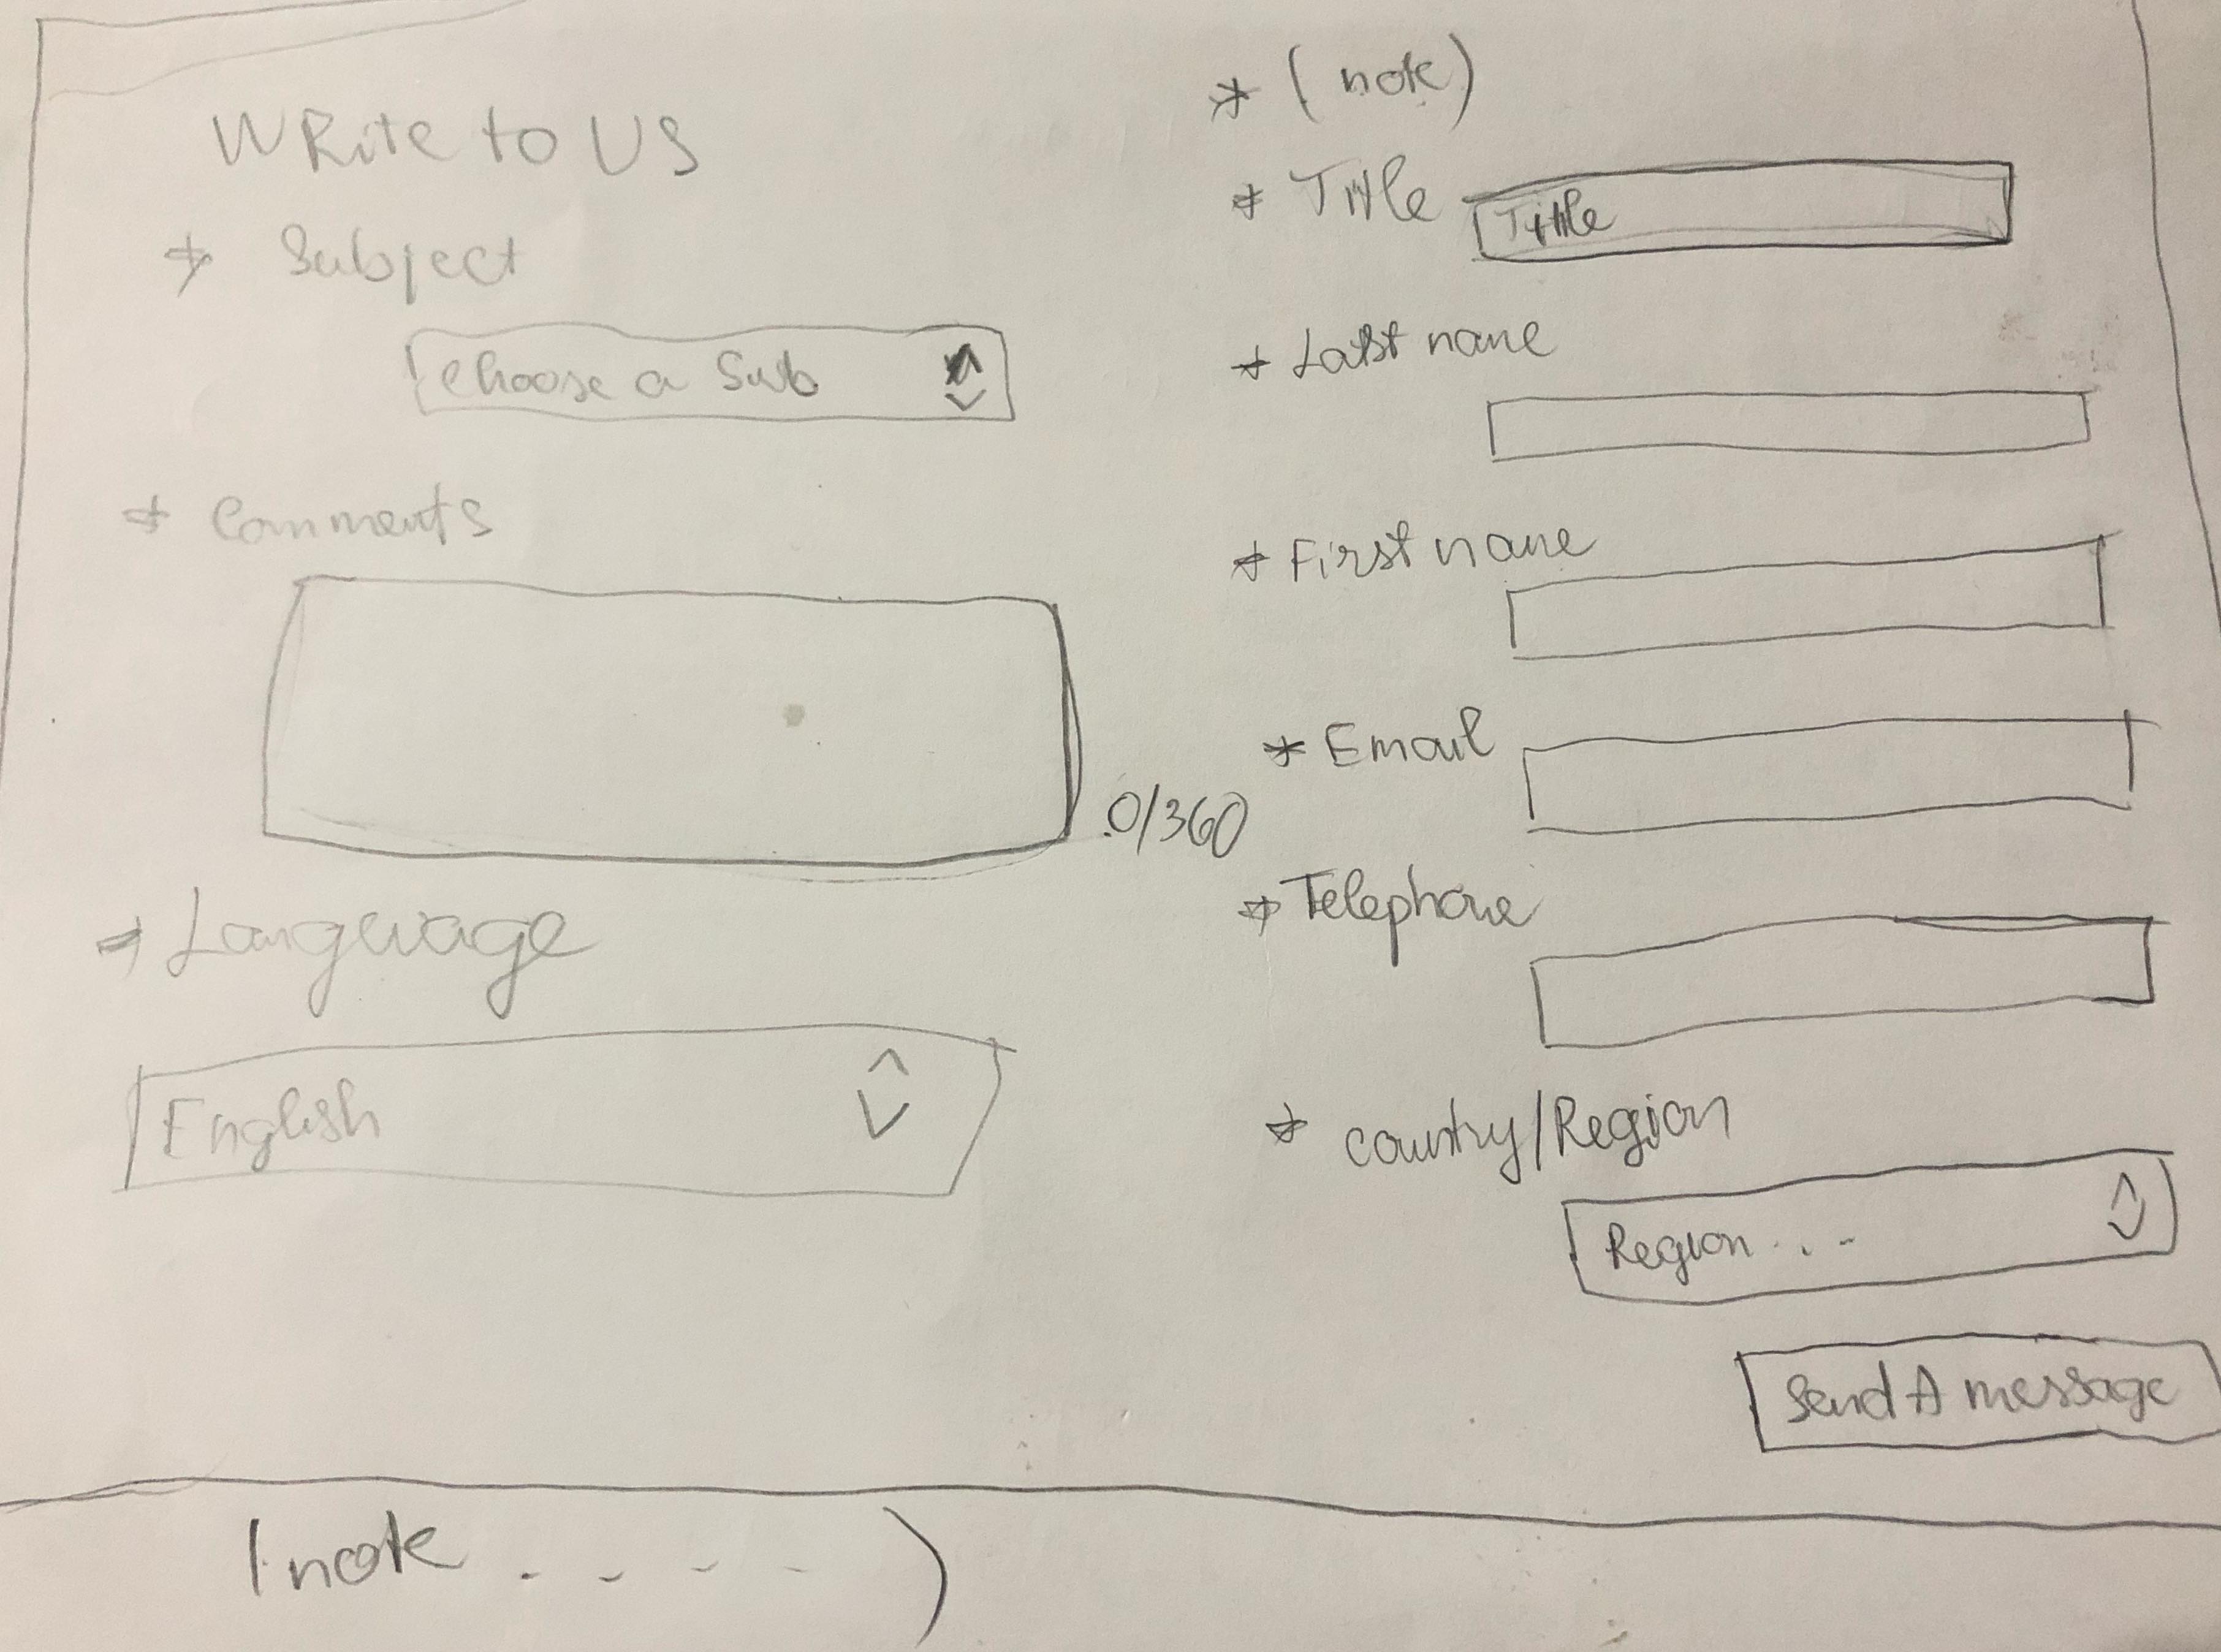 WRite to US
* Subject
Choose a Sub
* Comments
0/360
* Language
English
* (note)
* Title
Title
* Last name
* First name
* Email
* Telephone
* country/Region
Region...
Send A message
(note . . . . )